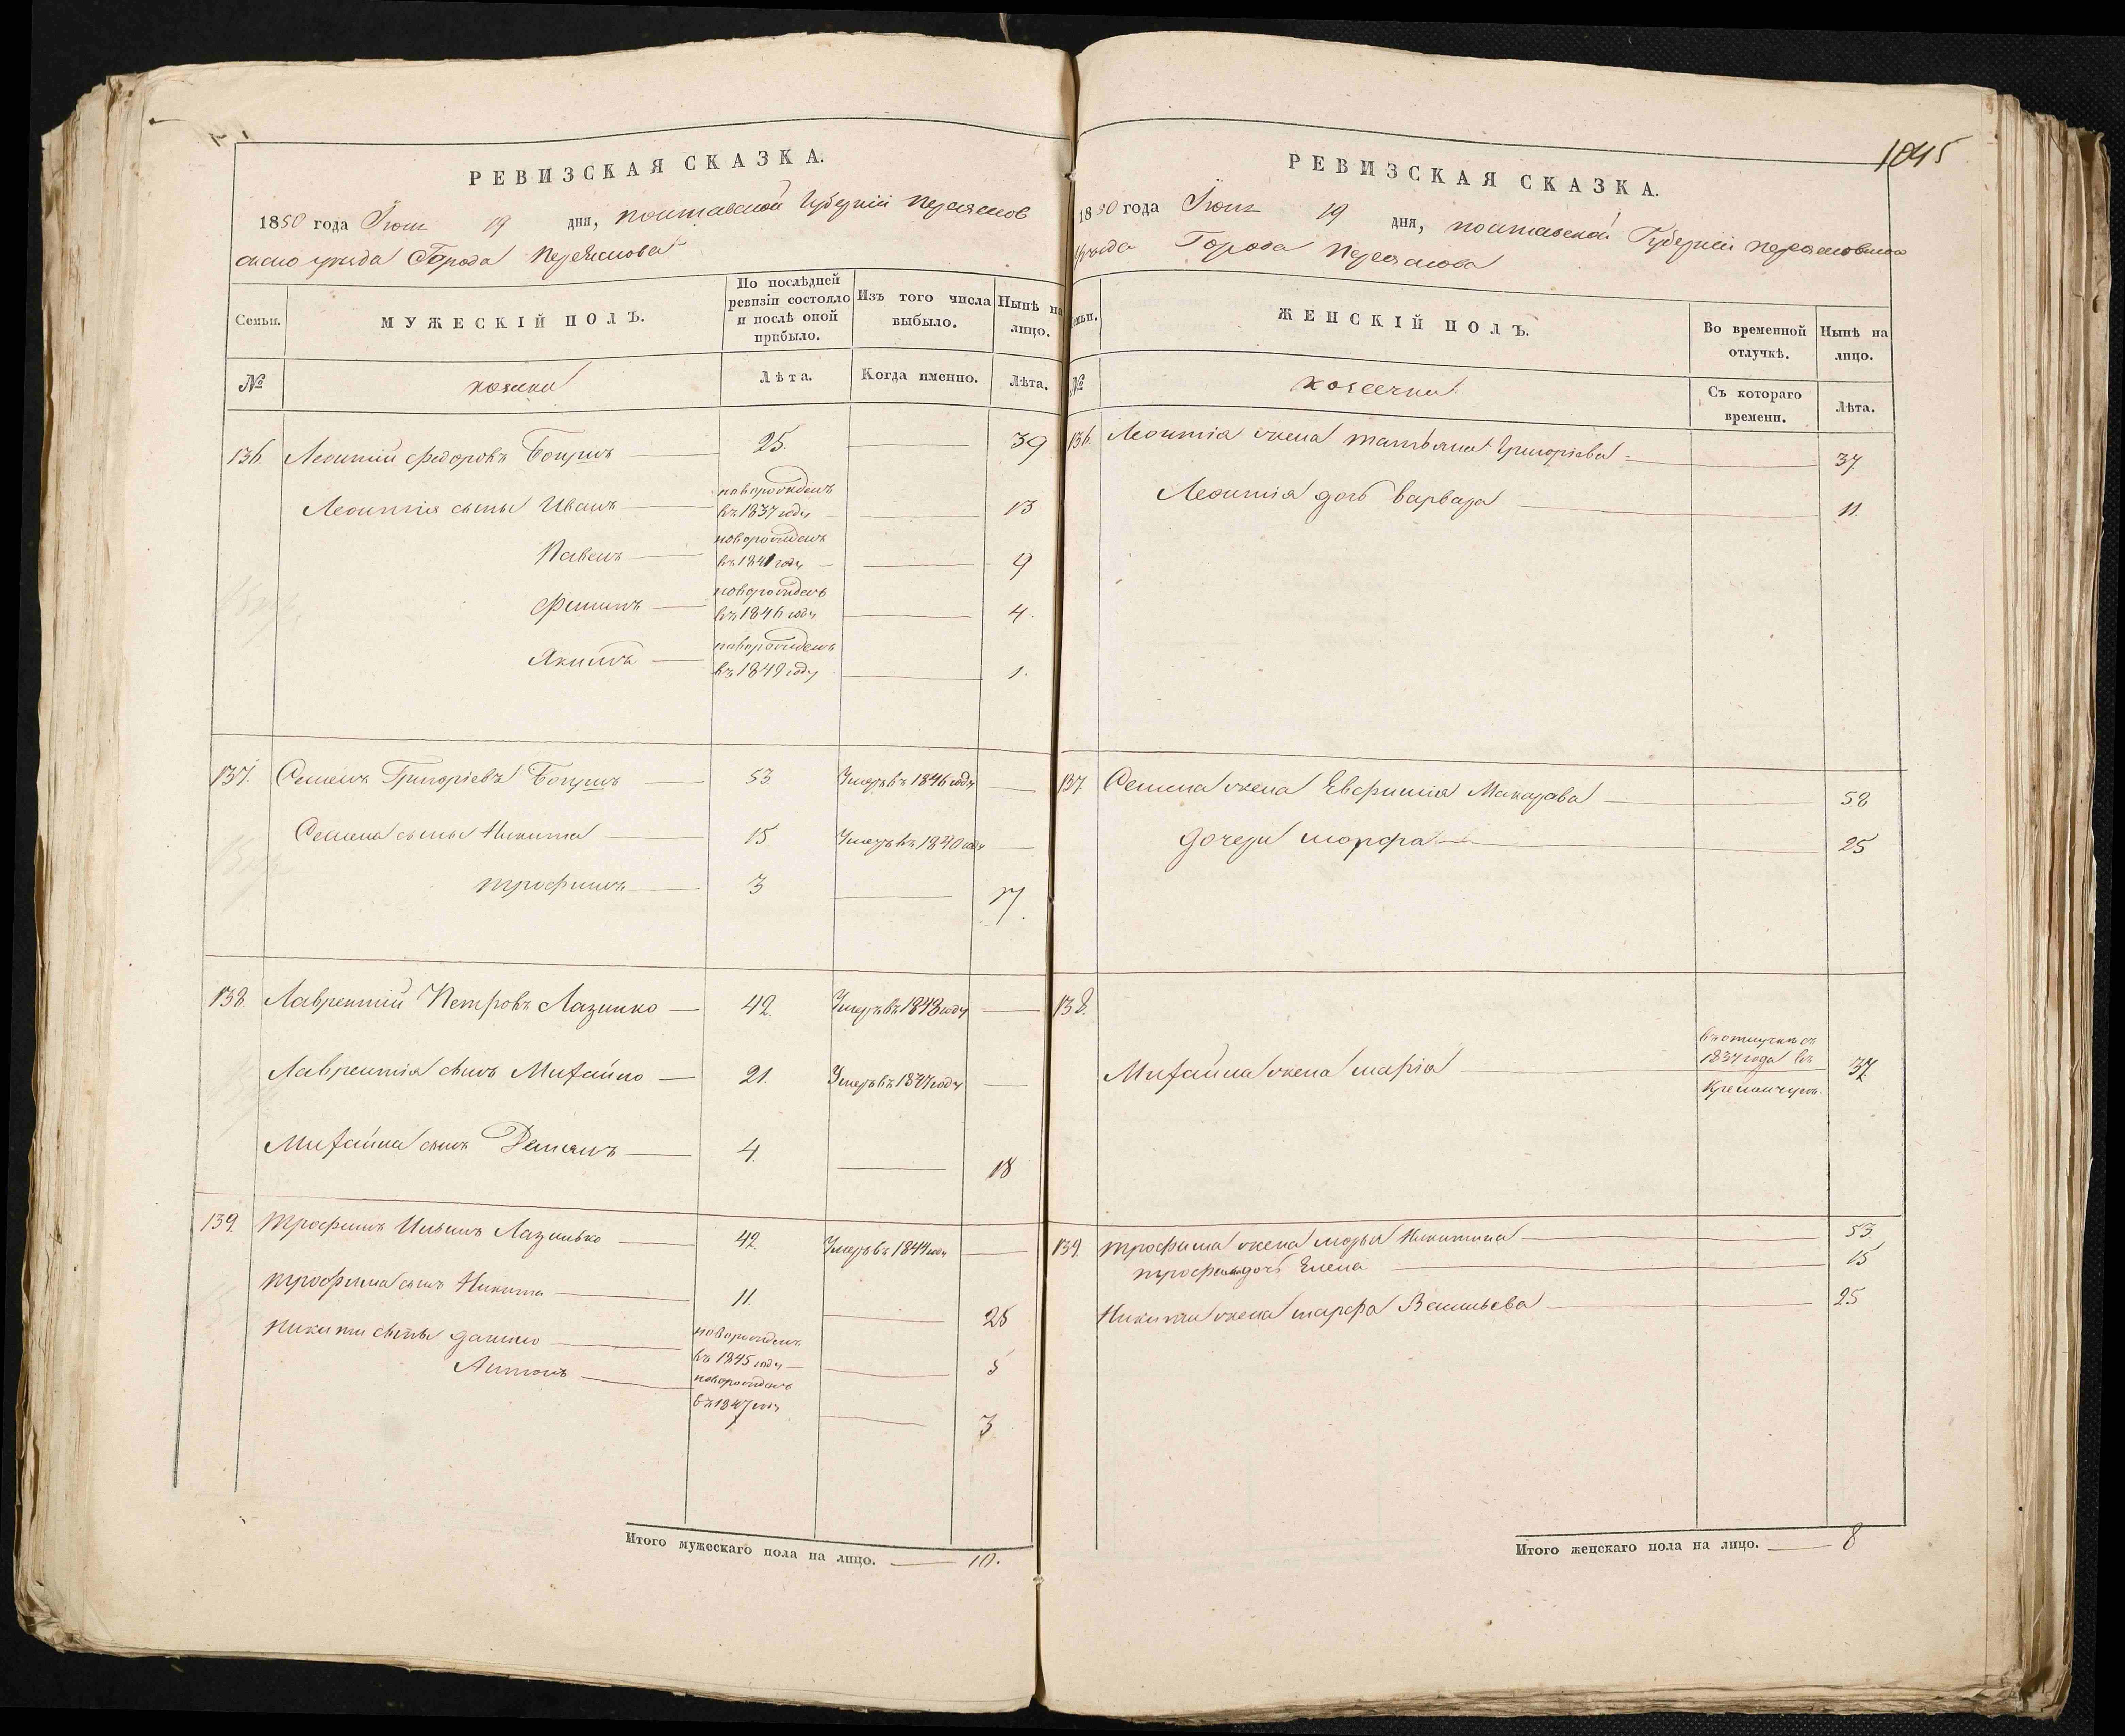 РЕВИЗСКАЯ СКАЗКА.
1850 года Июня 19 дня, полтавской Губернiи Переяслов
скаго уезда Города Переяслова
Семьи. МУЖЕСКIЙ ПОЛЪ. По послѣдней ревизiи состояло и послѣ оной прибыло. Изъ того числа выбыло. Нынѣ на лицо.
№ козаки Лѣта. Когда именно. Лѣта.
136. Леонтiй Федоровъ 25. 39
Леонтiя сыны Иванъ новорожденъ въ 1837 году 13
Павелъ новорожденъ въ 1841 году 9
Филипъ новорожденъ въ 1846 году 4.
Якимъ новорожденъ въ 1849 году 1.
137. Семенъ Григорiевъ 53 Умеръ въ 1846 году
Семена сыны Никита 15 Умеръ въ 1840 году
Трофимъ 3 17.
138 Лаврентiй Петровъ Лазинко 42. Умеръ въ 1843 году
Лаврентiя сынъ Михайло 21. Умеръ въ году
Михайла сынъ Демянъ 4. 18
139. Трофимъ Ильинъ Лазинько 42. Умеръ въ 1844 году
Трофима сынъ Никита 11. 25
Никиты сыны Данило новорожденъ въ 1845 году 5
Антонъ новорожденъ въ 1847 году 3
Итого мужескаго пола на лицо. 10.
1045
РЕВИЗСКАЯ СКАЗКА.
1850 года Июня 19 дня, полтавской Губернiи Переясловскаго
уезда Города Переяслова
Семьи. ЖЕНСКIЙ ПОЛЪ. Во временной отлучкѣ. Нынѣ на лицо.
№ козачки Съ котораго времени. Лѣта.
136. Леонтiя жена Татьяна Григорiева 37
Леонтiя дочь Варвара 11.
137. Семена жена Евфимiя Макарова 58
дочери Марфа 25
138.
Михайла жена Марiя въ отлучке съ 1837 года въ Кременчуге. 37
139. Трофима жена Никитина 53.
Трофима дочь Елена 15
Никиты жена Марфа Васильева 25
Итого женскаго пола на лицо. 8